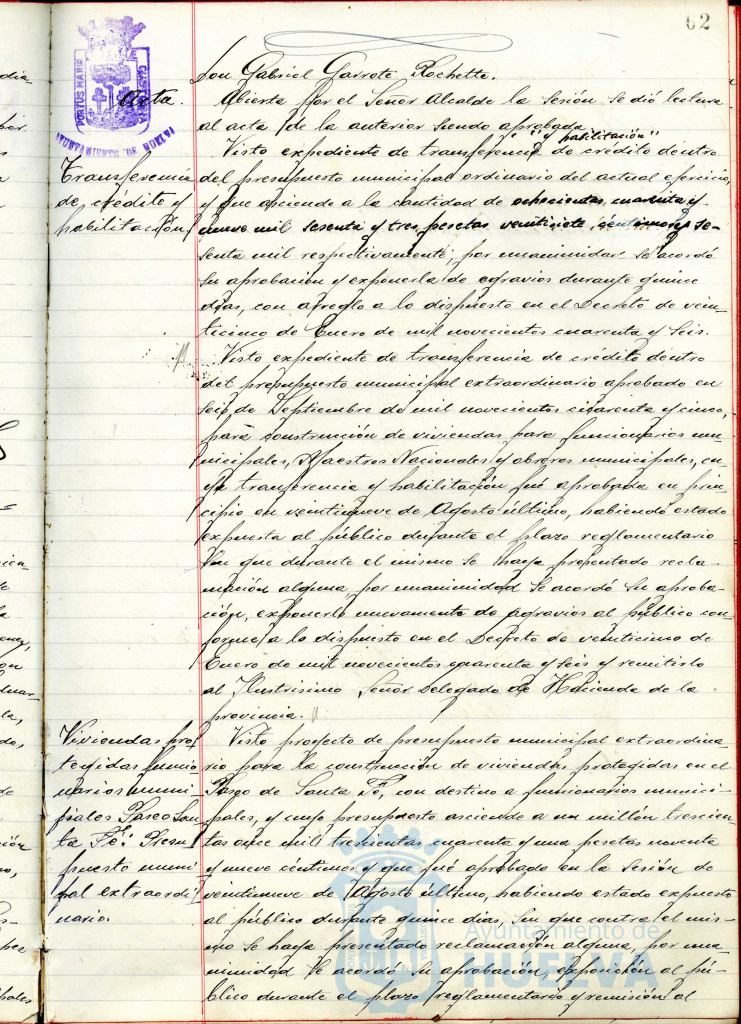 62
Don Gabriel Garrote Rochette.
Acta.
Abierta por el Señor Alcalde la Sesión se dió lectura
al acta de la anterior siendo aprobada.
Transferencia
de crédito y
habilitación
Visto expediente de transferencia "y habilitación" de crédito dentro
del presupuesto municipal ordinario del actual ejercicio
y que asciende a la cantidad de ochocientas cuarenta y
nueve mil sesenta y tres pesetas veintisiete céntimos y se-
senta mil respectivamente, por unanimidad se acordó
su aprobación y exponerla de agravios durante quince
días, con arreglo a lo dispuesto en el Decreto de vein-
ticinco de Enero de mil novecientos cuarenta y seis.
Visto expediente de transferencia de crédito dentro
del presupuesto municipal extraordinario aprobado en
seis de Septiembre de mil novecientos cuarenta y cinco,
para construcción de viviendas para funcionarios mu-
nicipales, Maestros Nacionales y obreros municipales, cu-
ya tranferencia y habilitación fué aprobada en prin-
cipio en veintinueve de Agosto último, habiendo estado
expuesta al público durante el plazo reglamentario
sin que durante el mismo se haya presentado recla-
mación alguna, por unanimidad se acordó su aproba-
ción, exponerlo nuevamente de agravios al público con-
forme a lo dispuesto en el Decreto de veinticinco de
Enero de mil novecientos cuarenta y seis y remitirlo
al Ilustrisimo Señor Delegado de Hacienda de la
provincia.
Viviendas pro-
tegidas funcio
narios muni-
cipales Paseo San
ta Fé: Presu
puesto muni
pal extraordi
nario.
Visto proyecto de presupuesto municipal extraordina-
rio para la construcción de viviendas protegidas en el
Paseo de Santa Fé, con destino a funcionarios munici-
pales, y cuyo presupuesto asciende a un millón trescien-
tas once mil trescientas cuarenta y una pesetas noventa
y nueve céntimos y que fué aprobado en la Sesión de
veintinueve de Agosto último, habiendo estado expuesto
al público durante quince días, sin que contra el mis-
mo se haya presentado reclamación alguna, por una
nimidad se acordó su aprobación, exposición al pú-
blico durante el plazo reglamentario y remisión al
PORTUS MARIS
AYUNTAMIENTO DE HUELVA
Ayuntamiento de
HUELVA